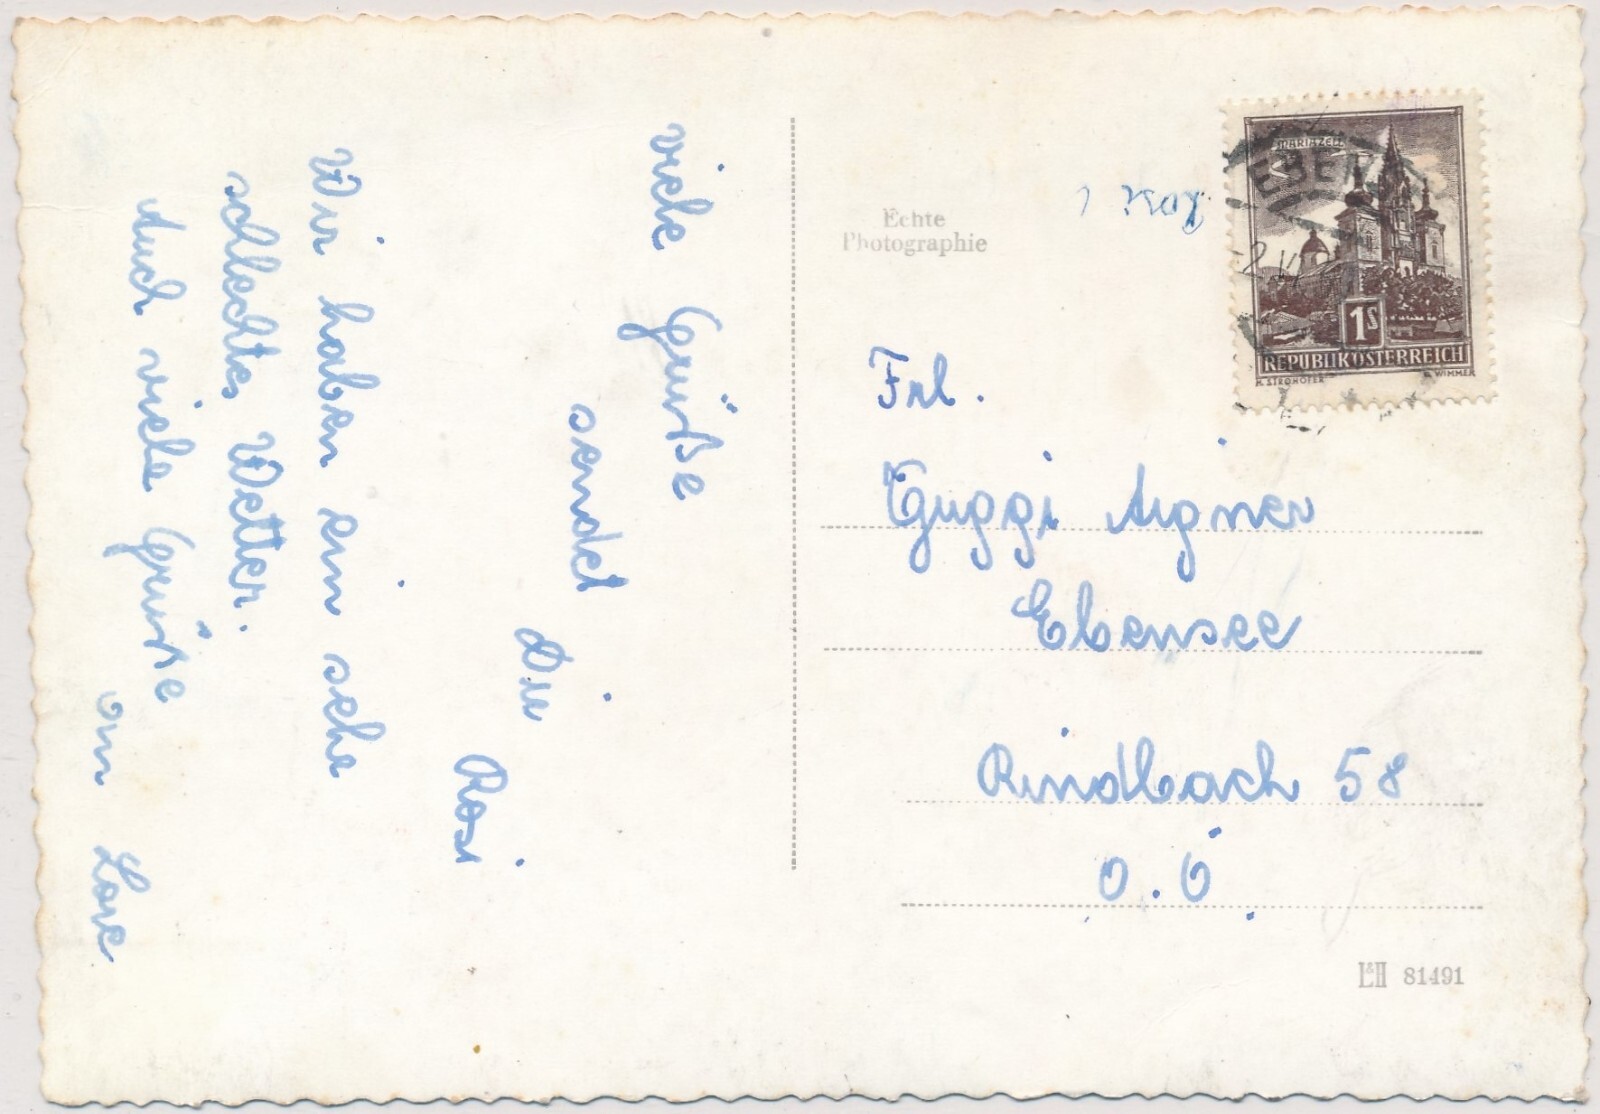 viele Grüße
sendet
Dir
Rosi
Wir haben ein sehr
schlechtes Wetter.
Auch viele Grüße
von Lore
Echte
Photographie
MARIAZELL
EBEN
1S
REPUBLIK ÖSTERREICH
H. STROHOFER
G. WIMMER
Frl.
Guggi Aigner
Ebensee
Rindbach 58
O.Ö
L&H 81491